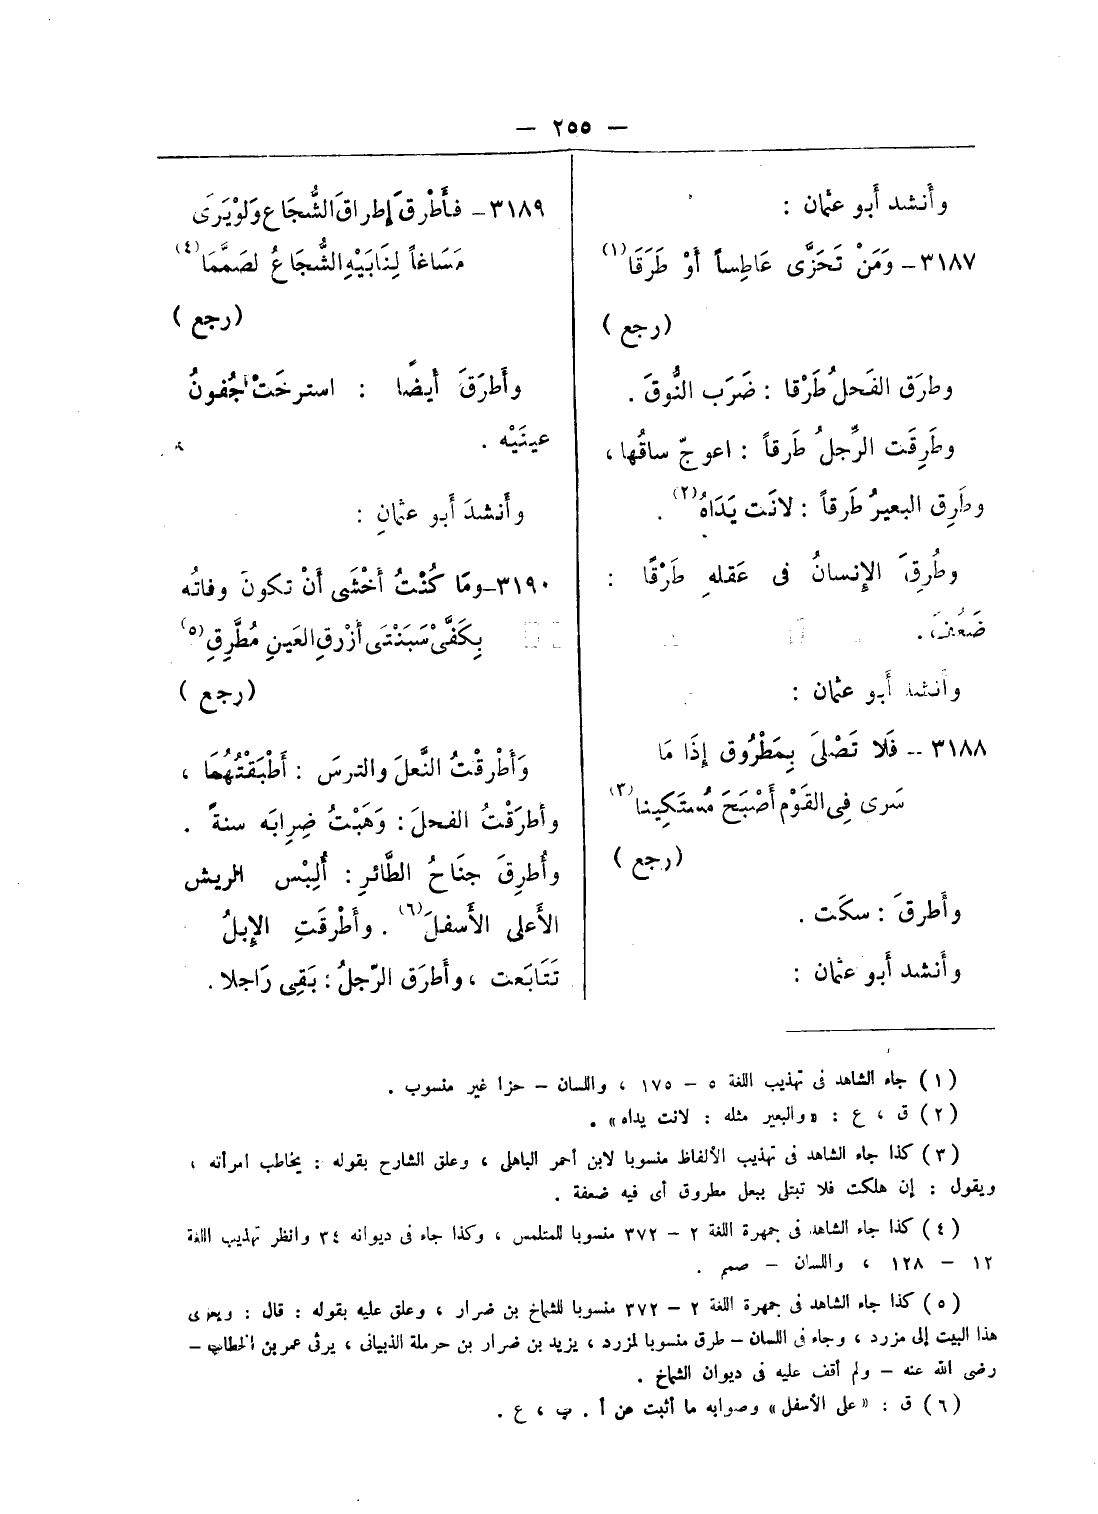 — ٢٥٥ —
وأنشد أبو عثمان :
٣١٨٧ – وَمَنْ تَحَزَّى عَاطِساً أَوْ طَرَقَا (١)
(رجع )
وطرَق الفَحلُ طَرْقا : ضَرَب النُّوقَ .
وطَرِقَت الرِّجلُ طَرقاً : اعوجّ ساقُها ،
وطَرِق البعيرُ طَرقاً : لانَت يَدَاهُ (٢) .
وطُرِقَ الإِنسانُ فى عَقلهِ طَرْقًا :
ضَعُفَ .
وأنشد أبو عثمان :
٣١٨٨ – فَلَا تَصْلىَ بِمَطْرُوق إِذَا مَا
سَرى فِى القَوْم أَصْبَحَ مُستَكِينا (٣)
(رجع )
وأطرقَ : سكَت .
وأنشد أبو عثمان :
٣١٨٩ – فأَطْرقَ إطراقَ الشُّجَاع وَلوْيَرَى
مَسَاغاً لِنَابَيْهِ الشُّجَاعُ لصَمَّمَا (٤)
(رجع )
وأَطرَقَ أيضًا : استرخَتْ جُفونُ
عينَيْه .
وأَنشدَ أبو عثمانِ :
٣١٩٠–ومَا كُنْتُ أخْشَى أنْ تكونَ وفاتُه
بِكَفَّىْ سَبَنْتَى أزْرقِ العَينِ مُطَّرِقِ (٥)
(رجع )
وَأطْرقْتُ النَّعلَ والترسَ : أَطْبَقْتُهُمَا ،
وأطرَقْتُ الفحلَ : وَهَبْتُ ضِرابَه سنةً .
وأُطرِقَ جنَاحُ الطَّائرِ : أُلبِسْ الريش
الأعلى الأَسفلَ (٦) . وأَطْرقَتِ الإِبلُ
تَتَابَعت ، وأَطرَق الرّجلُ : بَقِى رَاجلا .
(١) جاء الشاهد فى تهذيب اللغة ٥ – ١٧٥ ، واللسان – حزا غير منسوب .
(٢) ق ، ع : «والبعير مثله : لانت يداه» .
(٣) كذا جاء الشاهد فى تهذيب الألفاظ منسوبا لابن أحمر الباهلى ، وعلق الشارح بقوله : يخاطب امرأته ،
ويقول : إن هلكت فلا تبتلى ببعل مطروق أى فيه ضعفة .
(٤) كذا جاء الشاهد فى جمهرة اللغة ٢ – ٣٧٢ منسوبا للمتلمس ، وكذا جاء فى ديوانه ٣٤ وانظر تهذيب اللغة
١٢ – ١٢٨ ، واللسان – صمم .
(٥) كذا جاء الشاهد فى جمهرة اللغة ٢ – ٣٧٢ منسوبا للشماخ بن ضرار ، وعلق عليه بقوله : قال : ويعزى
هذا البيت إلى مزرد ، وجاء فى اللسان – طرق منسوبا لمزرد ، يزيد بن ضرار بن حرملة الذبيانى ، يرثى عمر بن الخطاب –
رضى الله عنه – ولم أقف عليه فى ديوان الشماخ .
(٦) ق : «على الأسفل» وصوابه ما أثبت عن أ . ب ، ع .